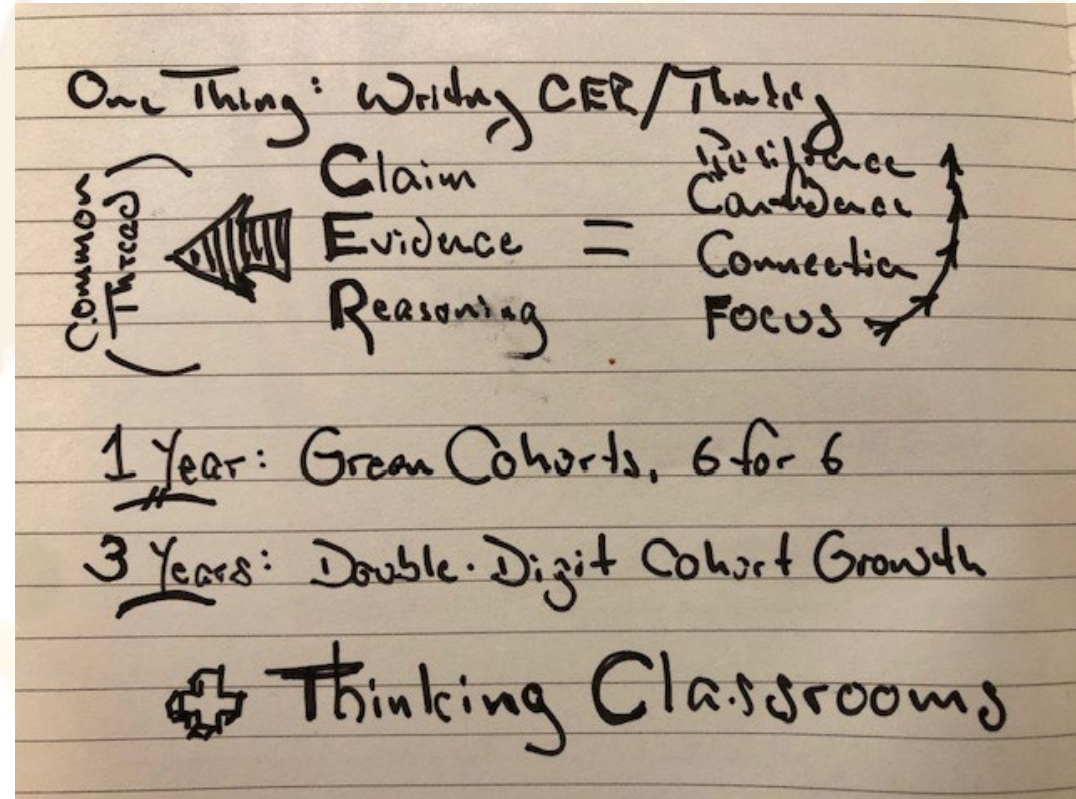 One Thing: Writing CER/Thinking
(Common Thread)
Claim
Evidence
Reasoning
=
Resilience
Confidence
Connection
Focus
1 Year: Green Cohorts, 6 for 6
3 Years: Double-Digit Cohort Growth
Thinking Classrooms